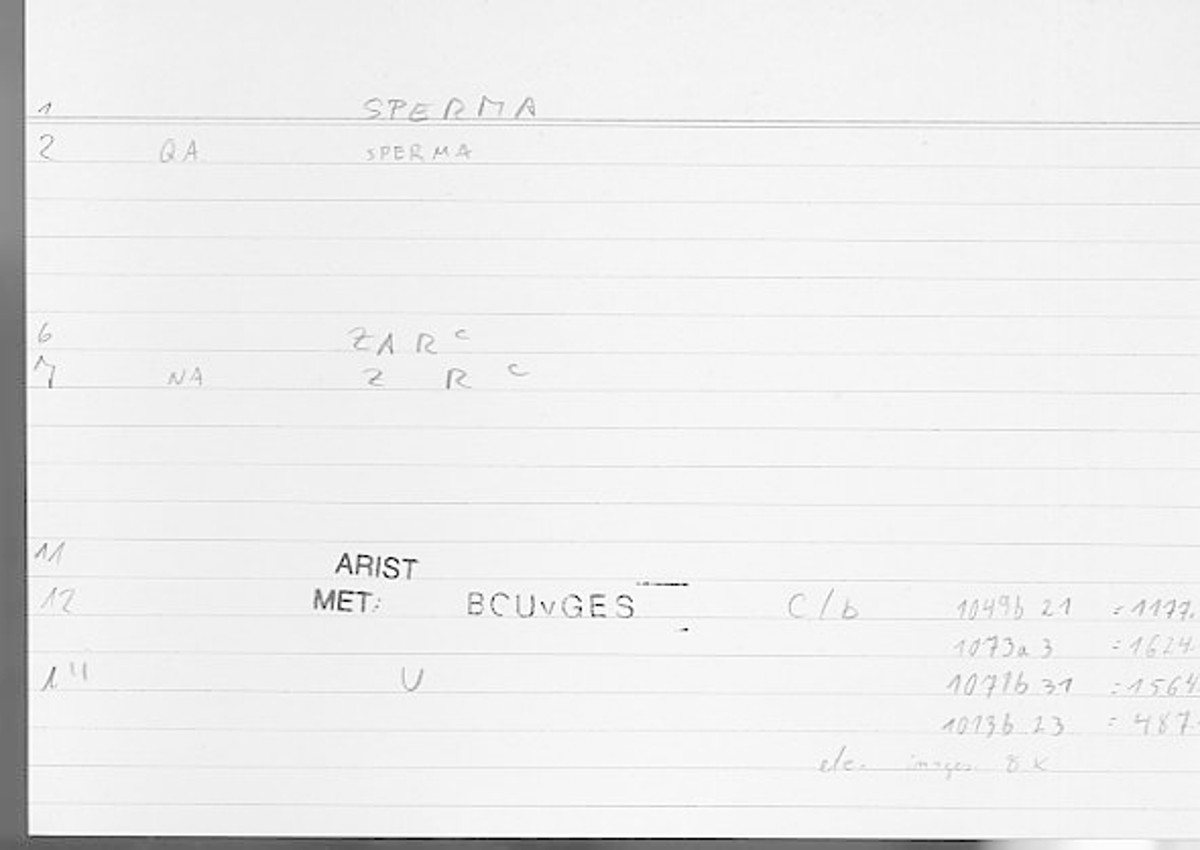 1 SPERMA
2 QA SPERMA
6 ZAR c
7 NA Z R c
11 ARIST
12 MET: BCUvGES C/b 1049b 21 = 1177.
1073a 3 = 1624.
1" U 1071b 31 = 1564
1013b 23 = 487.
etc. images 8 K